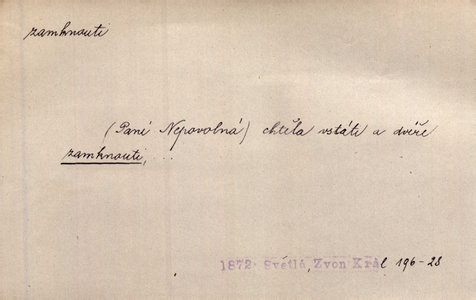 zamknouti
(Paní Nepovolná) chtěla vstáti a dvéře
zamknouti, ...
1872 Světlá, Zvon Král 196-28